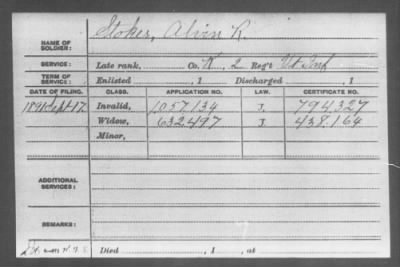 NAME OF SOLDIER: Stoker, Alvin R.
SERVICE: Late rank, Co. K, 2 Reg't Vt Inf
TERM OF SERVICE: Enlisted , 1 Discharged , 1
DATE OF FILING. CLASS. APPLICATION NO. LAW. CERTIFICATE NO.
1891 Sept 17. Invalid, 1.057.134 J. 794.327
Widow, 632.497 J. 438.164
Minor,
ADDITIONAL SERVICES:
REMARKS:
Died , 1 , at